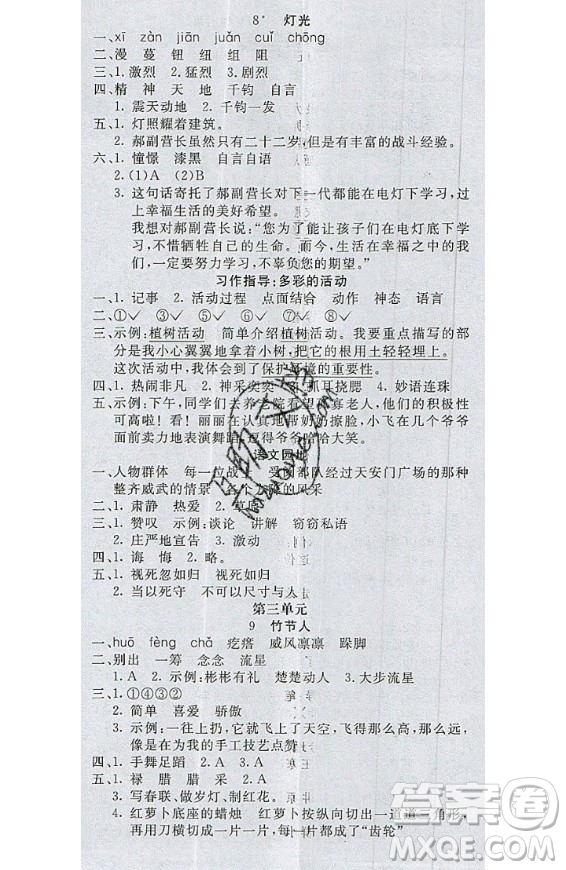 8* 灯光
一、xī zàn jiān juàn cuǐ chōng
二、漫 蔓 钮 纽 组 阻
三、1. 激烈 2. 猛烈 3. 剧烈
四、精 神 天 地 千钧 自言
1. 震天动地 2. 千钧一发
五、1. 灯照耀着建筑。
2. 郝副营长虽然只有二十二岁,但有丰富的战斗经验。
六、1. 憧憬 漆黑 自言自语
2. (1)A (2)B
3. 这句话寄托了郝副营长对下一代都能在电灯下学习,过
上幸福生活的美好希望。
我想对郝副营长说:“您为了能让孩子们在电灯底下学
习,不惜牺牲自己的生命。而今,生活在幸福之中的我
们,一定要努力学习,不辜负您的期望。”
习作指导:多彩的活动
一、1. 记事 2. 活动过程 点面结合 动作 神态 语言
二、①✓ ②✓ ⑤✓ ⑥✓ ⑦✓ ⑧✓
三、示例:植树活动 简单介绍植树活动。我要重点描写的部
分是我小心翼翼地拿着小树,把它的根用土轻轻埋上。
这次活动中,我体会到了保护环境的重要性。
四、1. 热闹非凡 2. 神采奕奕 3. 抓耳挠腮 4. 妙语连珠
五、示例:下午,我们去养老院看望 真老人,他们的积极性
可高啦!看!丽丽在认真地帮奶奶擦脸,小飞在几个爷爷
面前卖力地表演舞蹈,逗得爷爷哈哈大笑。
语文园地
一、人物群体 每一位战 受阅部队经过天安门广场的那种
整齐威武的情景 各个方队的风采
二、1. 肃静 热爱 2. 草原
三、1. 赞叹 示例:谈论 讲解 窃窃私语
2. 庄严地宣告 3. 激动
四、1. 诲 悔 2. 略。
五、1. 视死忽如归 视死如归
2. 当以死守 不可以身作则
第三单元
9 竹节人
一、huō fèng chǎ 疙瘩 威风凛凛 跺脚
二、别出 一筹 念念 流星
1. A 2. 示例:彬彬有礼 楚楚动人 3. 大步流星
三、1. ①④③②
2. 简单 喜爱 骄傲
3. 示例:一往上扔,它就飞上了天空,飞得那么高,那么
远,好像是在为我的手工技艺点赞
四、1. 手舞足蹈 2. A 3. A
五、1. 禄 腊 腊 采 2. A
3. 写春联、做岁灯、制红花。
4. 红萝卜底座的蜡烛 红萝卜按纵向切出一道道三角形,
再用刀横切成一片一片,每一片都成了“齿轮”
答案圈
MXQE.COM